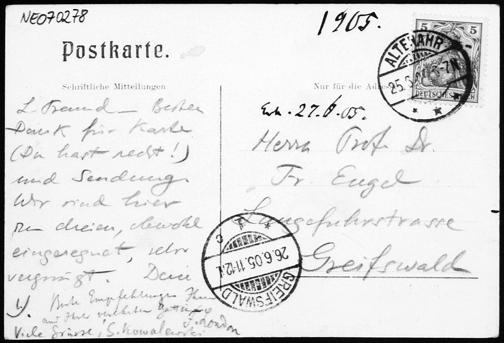 NE070278
1905.
Postkarte.
Schriftliche Mitteilungen
Nur für die Adresse
5 5
DEUTSCHES REICH
ALTENAHR
25.6. 6-7N.
L. Freund – Besten
Dank für Karte
(Du hast recht!)
und Sendung.
Wir sind hier
zu dreien, obwohl
eingeregnet, sehr
vergnügt. Dein
Erh. 27.6.05.
Herrn Prof. Dr.
Fr. Engel
Langefuhrstrasse
Greifswald
GREIFSWALD
26.6.05.11-12V.
Viele Empfehlungen Ihnen
und Ihrer verehrten
Viele Grüsse, S. Kowalewski